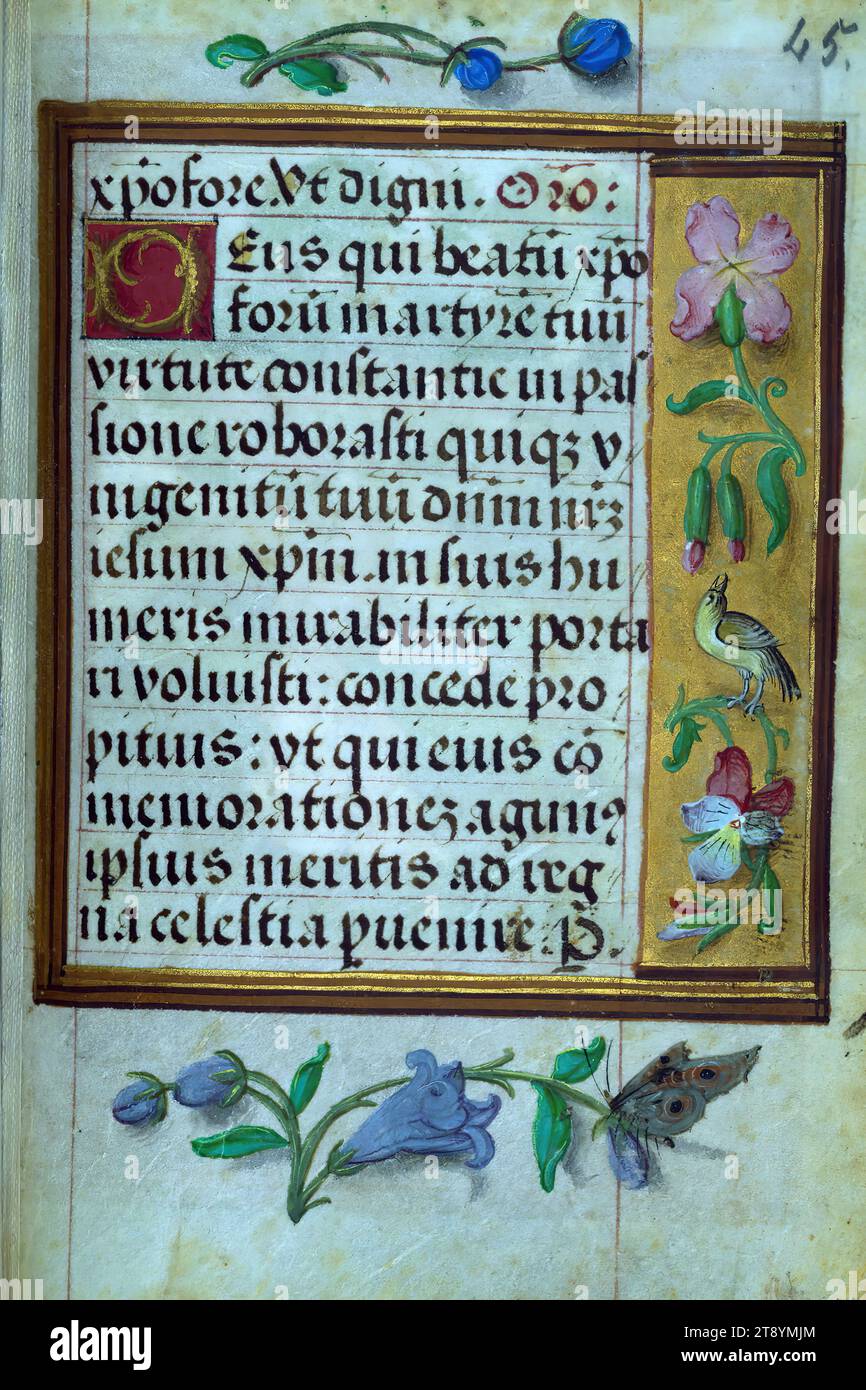 45.
xp̄ofore. Vt digni. Or̄o:
DEus qui beatū xp̄o
forū martyrē tuū
virtute constantie in pas
sione roborasti quiqꝫ v
nigenitū tuū dn̄m nr̄ꝫ
iesum xp̄m. in suis hu
meris mirabiliter porta
ri voluisti: concede pro
pitius: vt qui eius cō
memorationeꝫ agimꝰ
ipsius meritis ad reg
na celestia ꝑuenire. P̄.
alamy
alamy
Image ID: 2T8YMJM
www.alamy.com